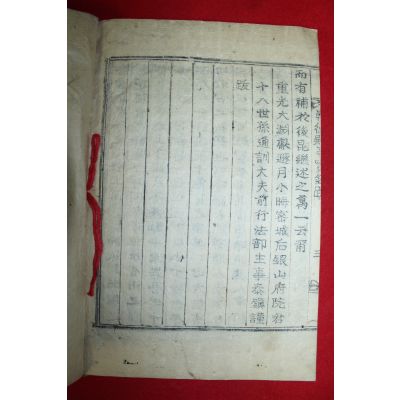 而有補於後昆繼述之萬一云爾
重光大淵獻遯月小晦密城后銀山府院君
十八世孫通訓大夫前行法部主事泰鎭謹
跋